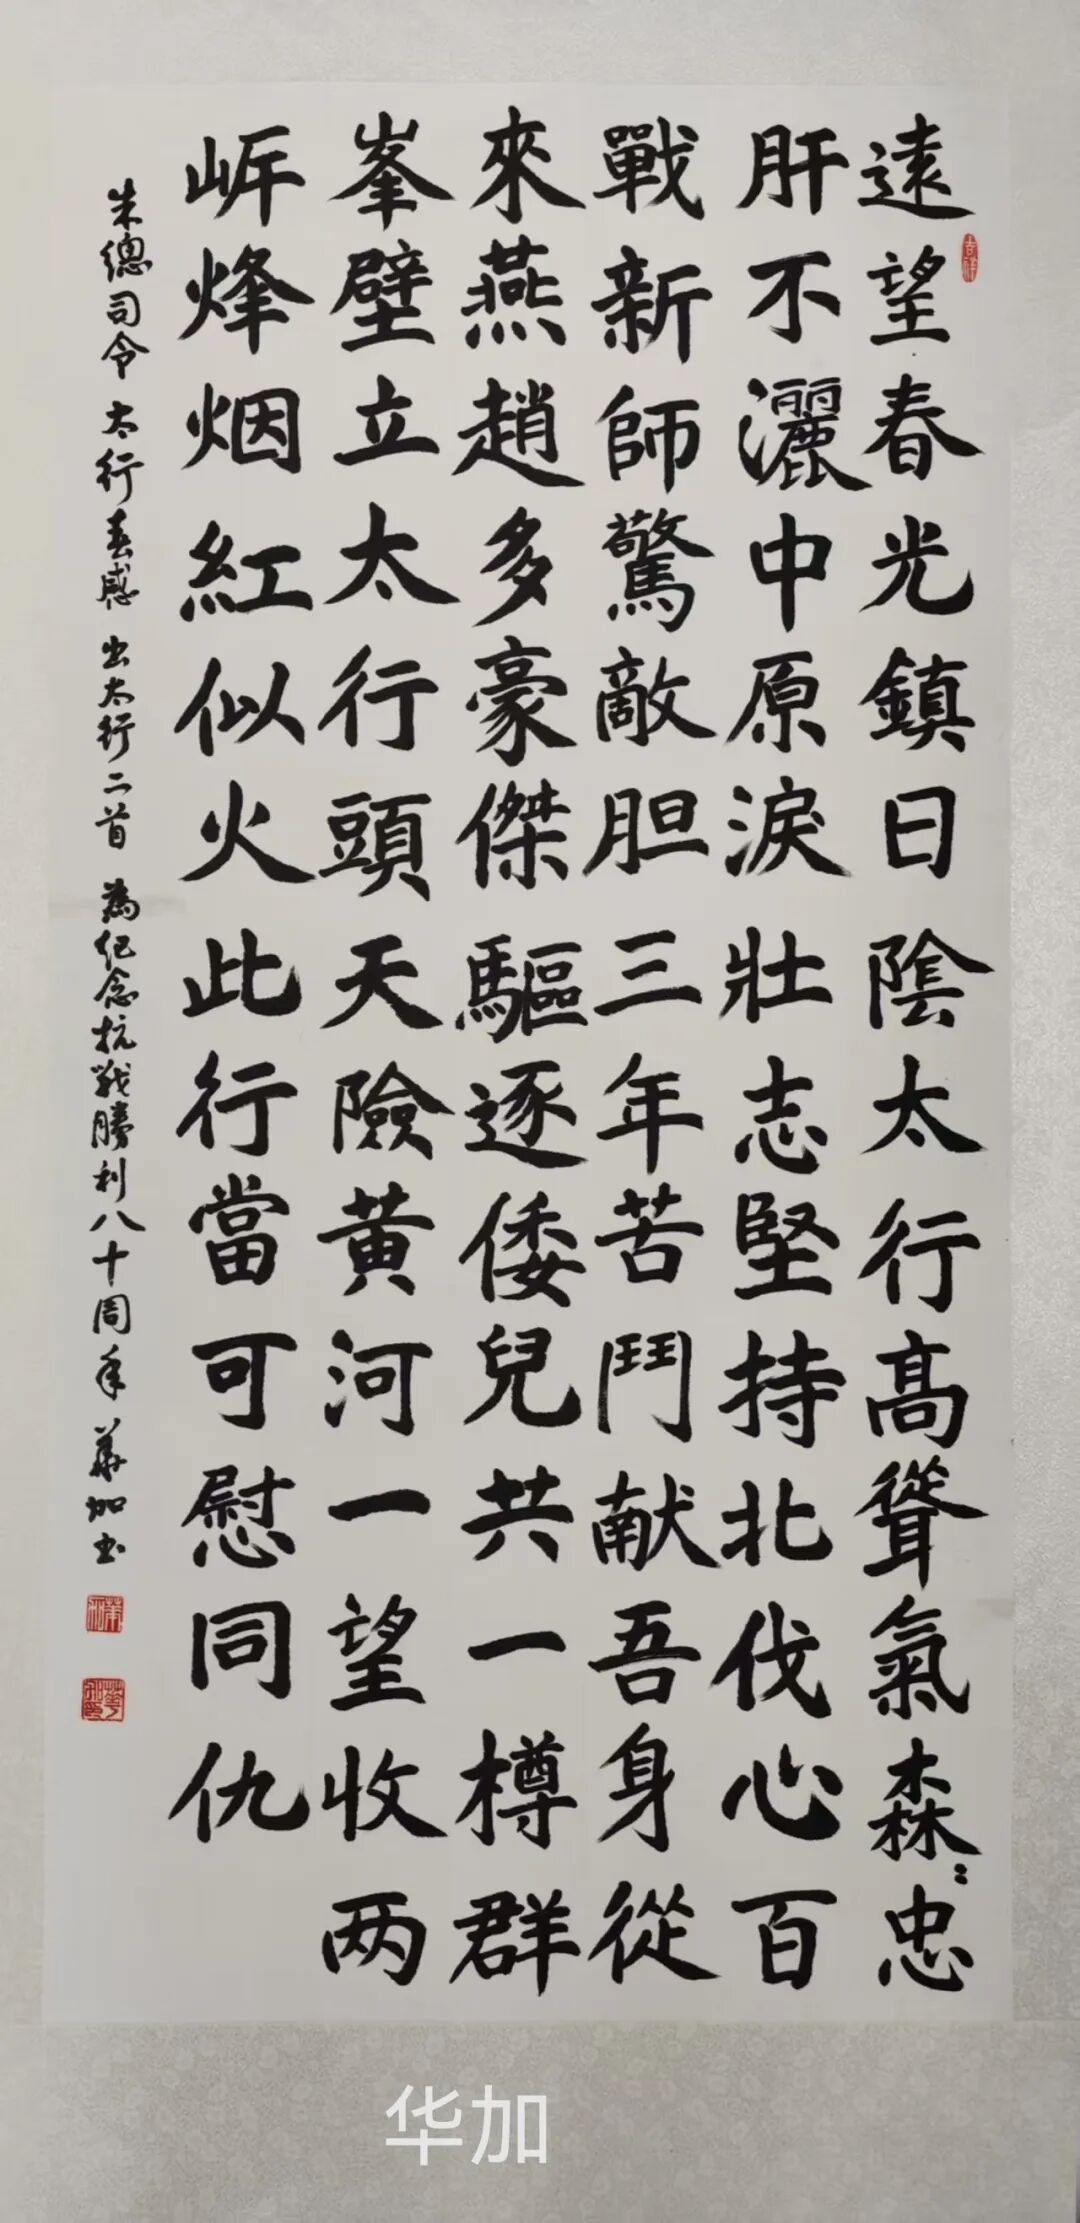 遠望春光鎮日陰太行高聳氣森〻忠
肝不灑中原淚壯志堅持北伐心百
戰新師驚敵胆三年苦鬥献吾身從
來燕趙多豪傑驅逐倭兒共一樽群
峯壁立太行頭天險黄河一望收两
岸烽烟紅似火此行當可慰同仇
朱總司令 太行春感 出太行二首 為紀念抗戰勝利八十周年 華加书
华加